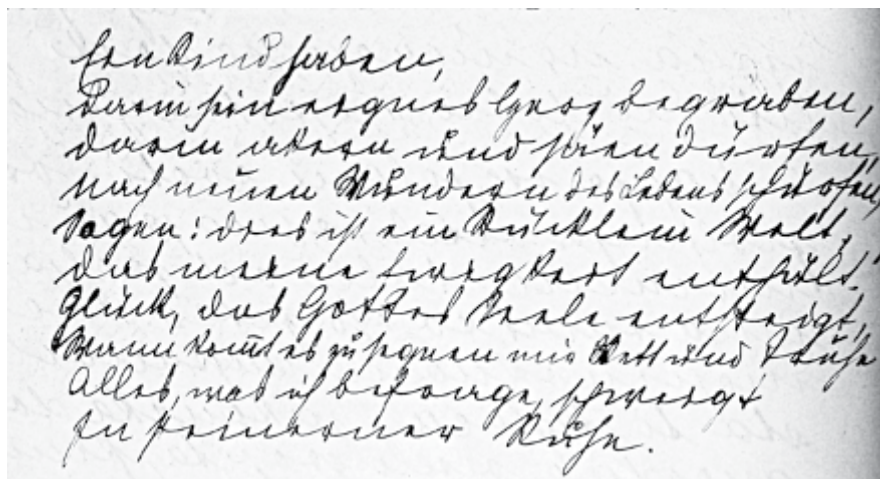 Ein Kind haben,
Darin sein eignes Herz begraben,
darin ackern und säen dürfen,
nach neuen Wundern des Lebens schürfen,
Sagen: dies ist ein Stücklein Welt,
das meine Ewigkeit enthält.
Glück, das Gottes Seele entsteigt,
Wann kommt es zu segnen mir Bett und Truhe
Alles, was ich befrage, schweigt
In steinerner Ruhe.